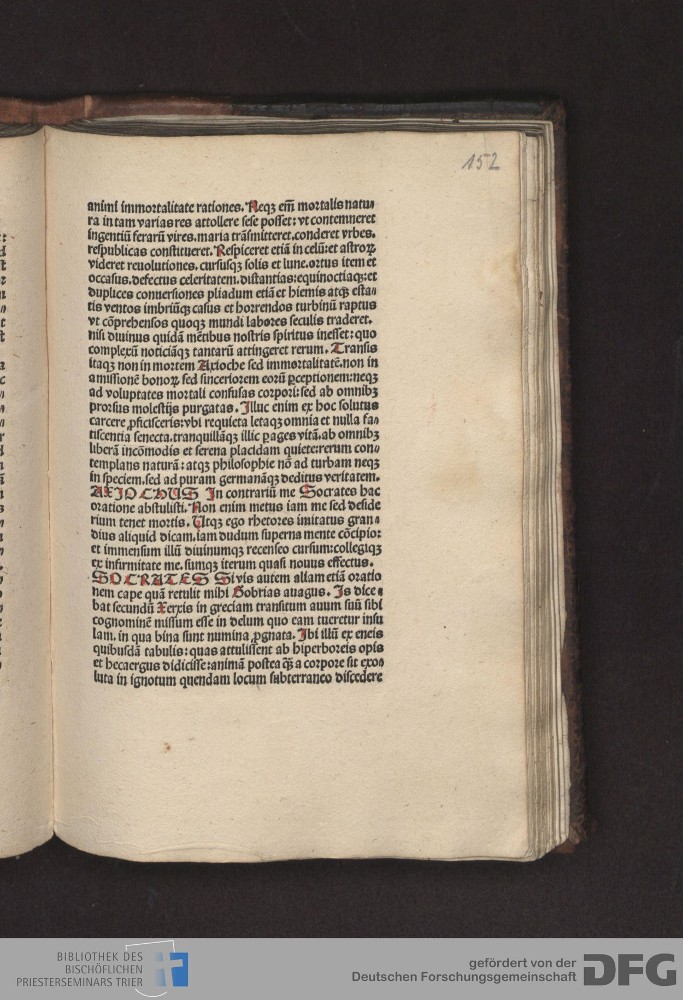 152
animi immortalitate rationes. Neqꝫ em̄ mortalis natu-
ra in tam varias res attollere sese posset: vt contemneret
ingentiū ferarū vires. maria trāsmitteret. conderet vrbes.
respublicas constitueret. Respiceret etiā in celū: et astroꝝ
videret reuolutiones. cursusqꝫ solis et lune. ortus item et
occasus. defectus celeritatem. distantias: equinoctiaqꝫ: et
duplices conuersiones pliadum etiā et hiemis atqꝫ esta-
tis ventos imbriūqꝫ casus et horrendos turbinū raptus
vt cōprehensos quoqꝫ mundi labores seculis traderet.
nisi diuinus quidā mētibus nostris spiritus inesset: quo
complexū noticiāqꝫ tantarū attingeret rerum. Transis
itaqꝫ non in mortem Axioche sed immortalitatē. non in
amissionē bonoꝝ sed sinceriorem eorū ꝑceptionem: neqꝫ
ad voluptates mortali confusas corpori: sed ab omnibꝫ
prorsus molestijs purgatas. Illuc enim ex hoc solutus
carcere ꝓficisceris: vbi requieta letaqꝫ omnia et nulla fa-
tiscentia senecta. tranquillāqꝫ illic ꝑages vitā. ab omnibꝫ
liberā incōmodis et serena placidam quiete: rerum con-
templans naturā: atqꝫ philosophie nō ad turbam neqꝫ
in speciem. sed ad puram germanāqꝫ deditus veritatem.
AXIOCHUS In contrariū me Socrates hac
oratione abstulisti. Non enim metus iam me sed deside
rium tenet mortis. Utqꝫ ego rhetores imitatus gran-
dius aliquid dicam. iam dudum superna mente cōcipio:
et immensum illū diuinumqꝫ recenseo cursum: collegiqꝫ
ex infirmitate me. sumqꝫ iterum quasi nouus effectus.
SOCRATES Si vis autem aliam etiā oratio
nem cape quā retulit mihi Gobrias auagus. Is dice-
bat secundū Xerxis in greciam transitum auum suū sibi
cognominē missum esse in delum quo eam tueretur insu
lam. in qua bina sunt numina ꝓgnata. Ibi illū ex eneis
quibusdā tabulis: quas attulissent ab hiperboreis opis
et hecaergus didicisse: animā postea q̄ꝫ a corpore sit exo-
luta in ignotum quendam locum subterraneo discedere
BIBLIOTHEK DES
BISCHÖFLICHEN
PRIESTERSEMINARS TRIER
gefördert von der
Deutschen Forschungsgemeinschaft
DFG